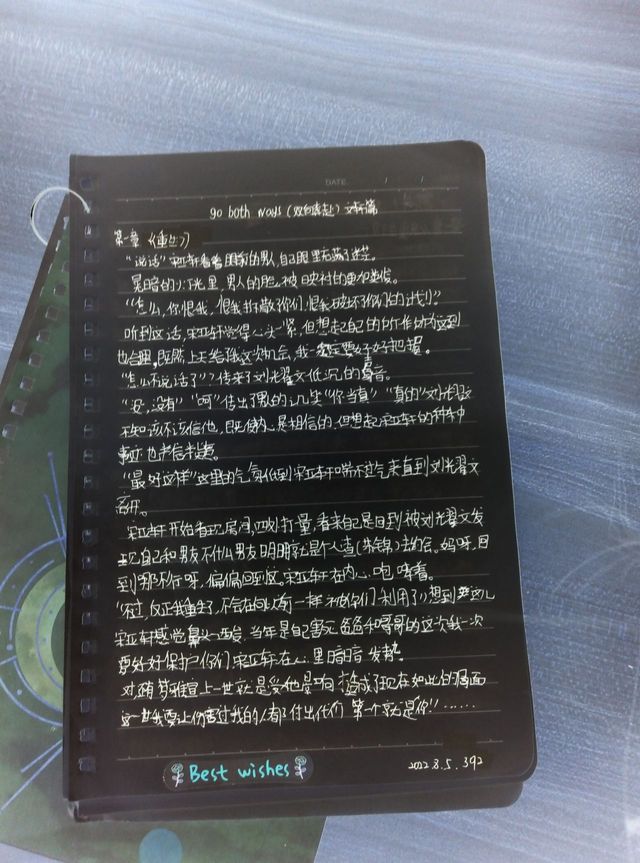 DATE / /
go both ways (双向奔赴) 文轩篇
第一章《重生》
"说话"宋亚轩看着眼前的男人,自己眼里充满了迷茫。
昏暗的灯光里,男人的脸,被映衬的更加
"怎么,你恨我,恨我打散你们,恨我破坏你们的计划"
听到这话,宋亚轩觉得心头一紧,但想起自己的所作所为感到
也合理,既然上天给我这次机会,我一定要好好把握。
"怎么不说话了"?传来了刘耀文低沉的声音。
"没,没有" "呵"传出了男的讥笑"你当真" "真的"刘耀文
不知该不该信他,既使内心是相信的,但想起宋亚轩的种种
事迹也
"最好这样"这里的气氛低到宋亚轩喘不过气来直到刘耀文
离开。
宋亚轩开始看现房间,四处打量,看来自己是回到被刘耀文发
现自己和男友不什么男友明明就是个人渣(朱锦)去约会。妈呀,回
到哪不行呀,偏偏回到这,宋亚轩在内心咆哮着。
不过,反正我重生了,不会在向以前一样被你们利用了"想到这儿
宋亚轩感觉鼻头一酸,当年是自己害死爸爸和哥哥的这次我一次
要好好保护你们宋亚轩在心里暗暗发势。
对了,上一世就是受他影响才变成了现在如此的局面
这一世我要让伤害过我的人都付出代价 第一个就是你!!······
Best wishes
2022.8.5.392